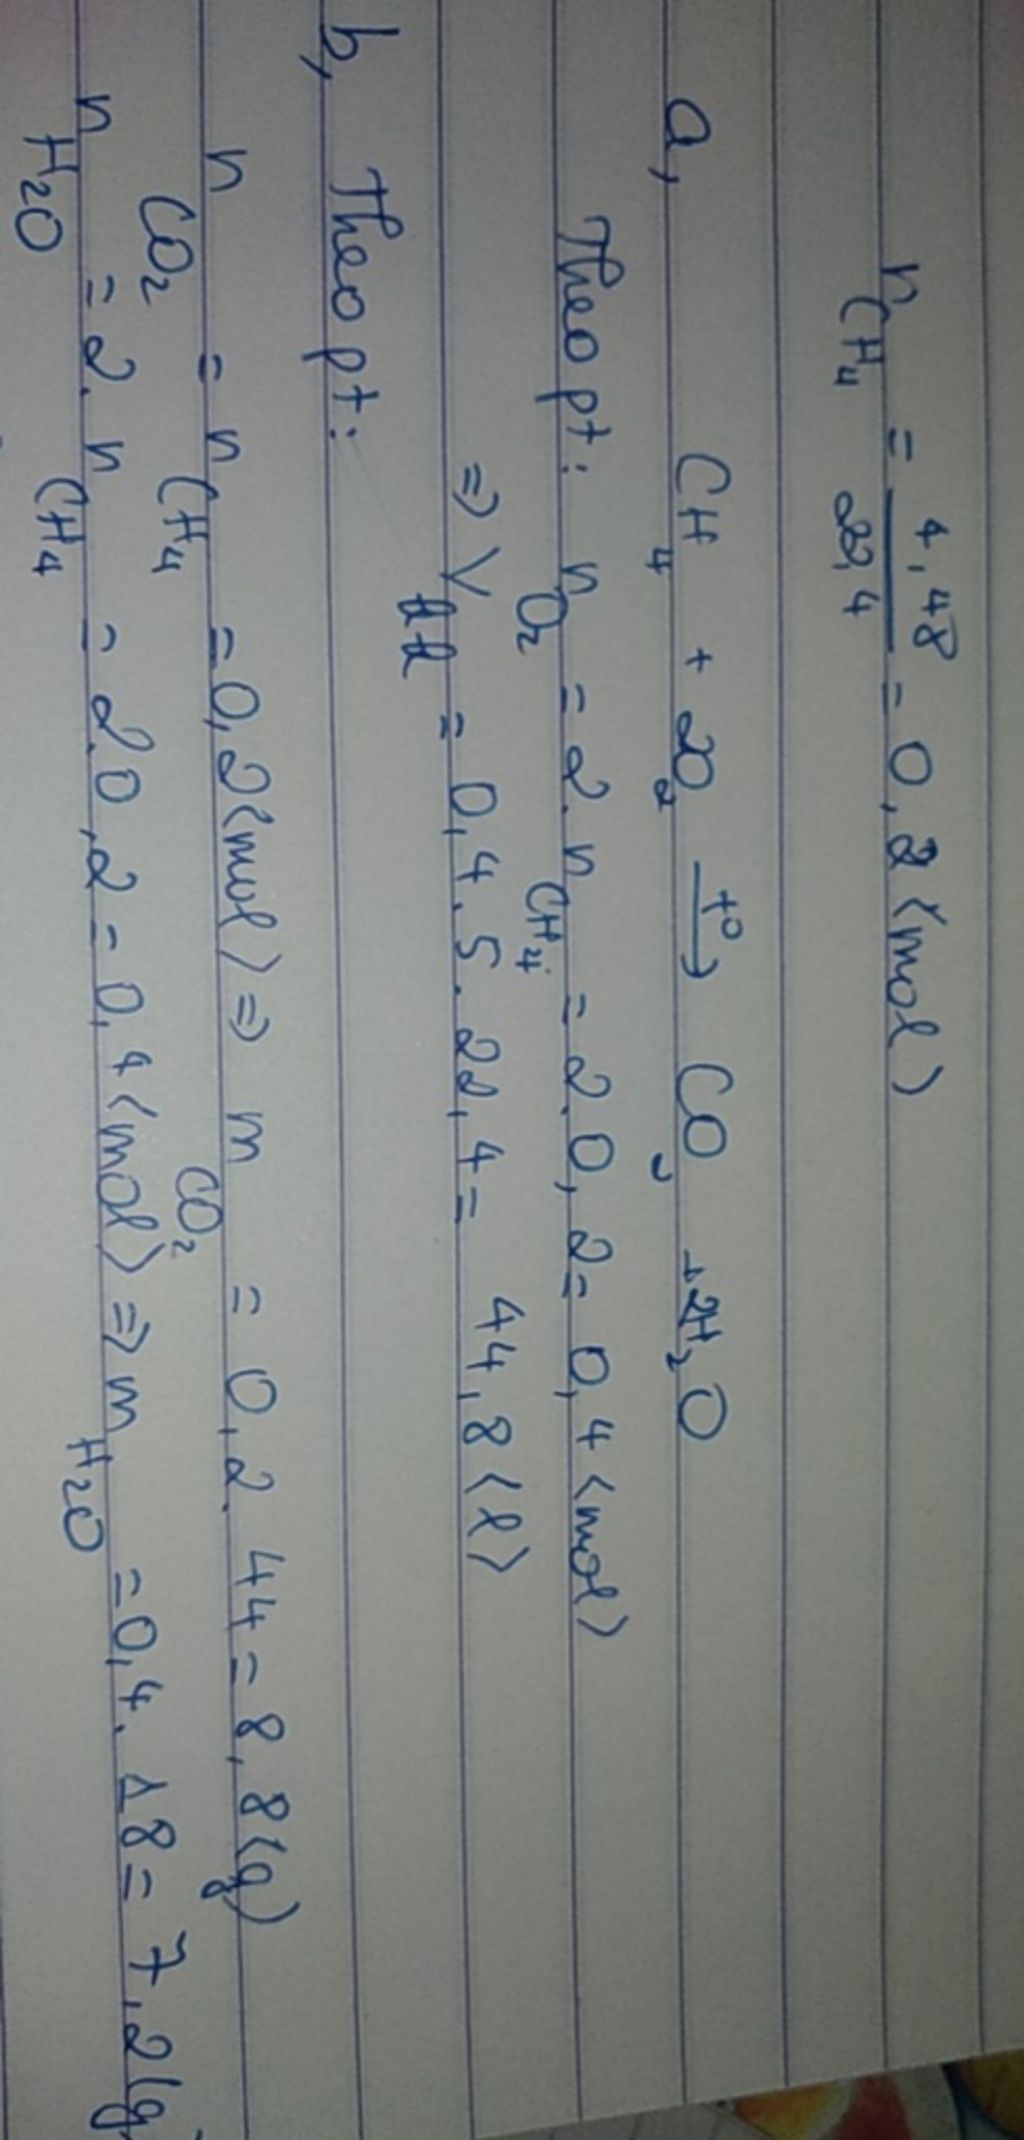 n CH4 = 4,48 / 22,4 = 0,2 (mol)
a, CH4 + 2O2 —t°→ CO2 + 2H2O
Theo pt: nO2 = 2.nCH4 = 2.0,2 = 0,4 (mol)
=> Vkk = 0,4.5.22,4 = 44,8 (l)
b, Theo pt:
nCO2 = nCH4 = 0,2 (mol) => mCO2 = 0,2.44 = 8,8 (g)
nH2O = 2.nCH4 = 2.0,2 = 0,4 (mol) => mH2O = 0,4.18 = 7,2 (g